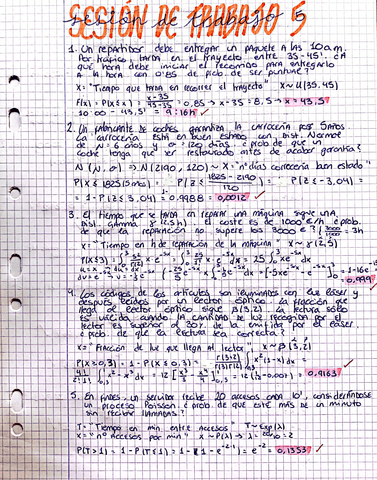 SESIÓN DE TRABAJO 5
1. Un repartidor debe entregar un paquete a las 10 a.m.
Por tráfico, tarda en el trayecto entre 35-45'. ¿A
qué hora debe iniciar el recorrido para entregarlo
a la hora con 0'85 de prob. de ser puntual?
X= "Tiempo que tarda en recorrer el trayecto" X~U(35,45)
F(x) = P(X≤x) = x-35/45-35 = 0,85 → x-35 = 8,5 → x = 43,5
10:00 - 43,5' = 9:16h
2. Un fabricante de coches garantiza la carrocería por 5 años.
La carrocería está en buen estado con Dist. Normal
de N = 6 años y σ = 120 días. ¿prob de que un
coche tenga que ser restaurado antes de acabar garantía?
N (N, σ) → N(2190, 120) → X = "nº días carrocería buen estado"
P(X ≤ 1825) = P(Z ≤ 1825-2190/120) = P(Z ≤ -3,04) =
= 1-P(Z ≤ 3,04) = 0.9988 = 0,0012
3. El tiempo que se tarda en reparar una máquina sigue una
Dist. gamma γ(5,2). El coste es de 1000€/h ¿prob.
de que la reparación no supere los 3000€? 3000/1000 = 3h
X = "Tiempo en h de reparación de la máquina" X~γ(2,5)
P(X≤3) = = 25 = 0,999
4. Los códigos de los artículos son iluminados con luz láser y
después leídos por un lector óptico. La fracción que
llega al lector óptico sigue β(3,2). La lectura sólo
es válida cuando la cantidad de luz recibida por el
lector es superior al 30% de la emitida por el láser
¿prob. de que la lectura sea correcta?
X = "Fracción de luz que llega al lector" X~β(3,2)
P(X≥0,3) = 1-P(X≤0,3) = = 0,9163
5. En findes, un servidor recibe 20 accesos cada 10', considerándose
un proceso Poisson. ¿prob de que esté más de un minuto
sin recibir llamadas?
T= "Tiempo en min entre accesos" T~Exp(λ)
X= "nº accesos por min" X~P(λ) → λ = 20/10 = 2
P(T>1) = 1-P(T≤1) = 1-(1-e⁻²·¹) = e⁻² = 0,1353